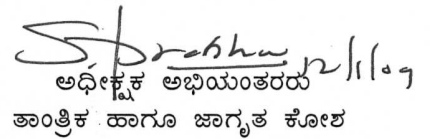 S. Prabhu 12/1/09
ಅಧೀಕ್ಷಕ ಅಭಿಯಂತರರು
ತಾಂತ್ರಿಕ ಹಾಗೂ ಜಾಗೃತ ಕೋಶ